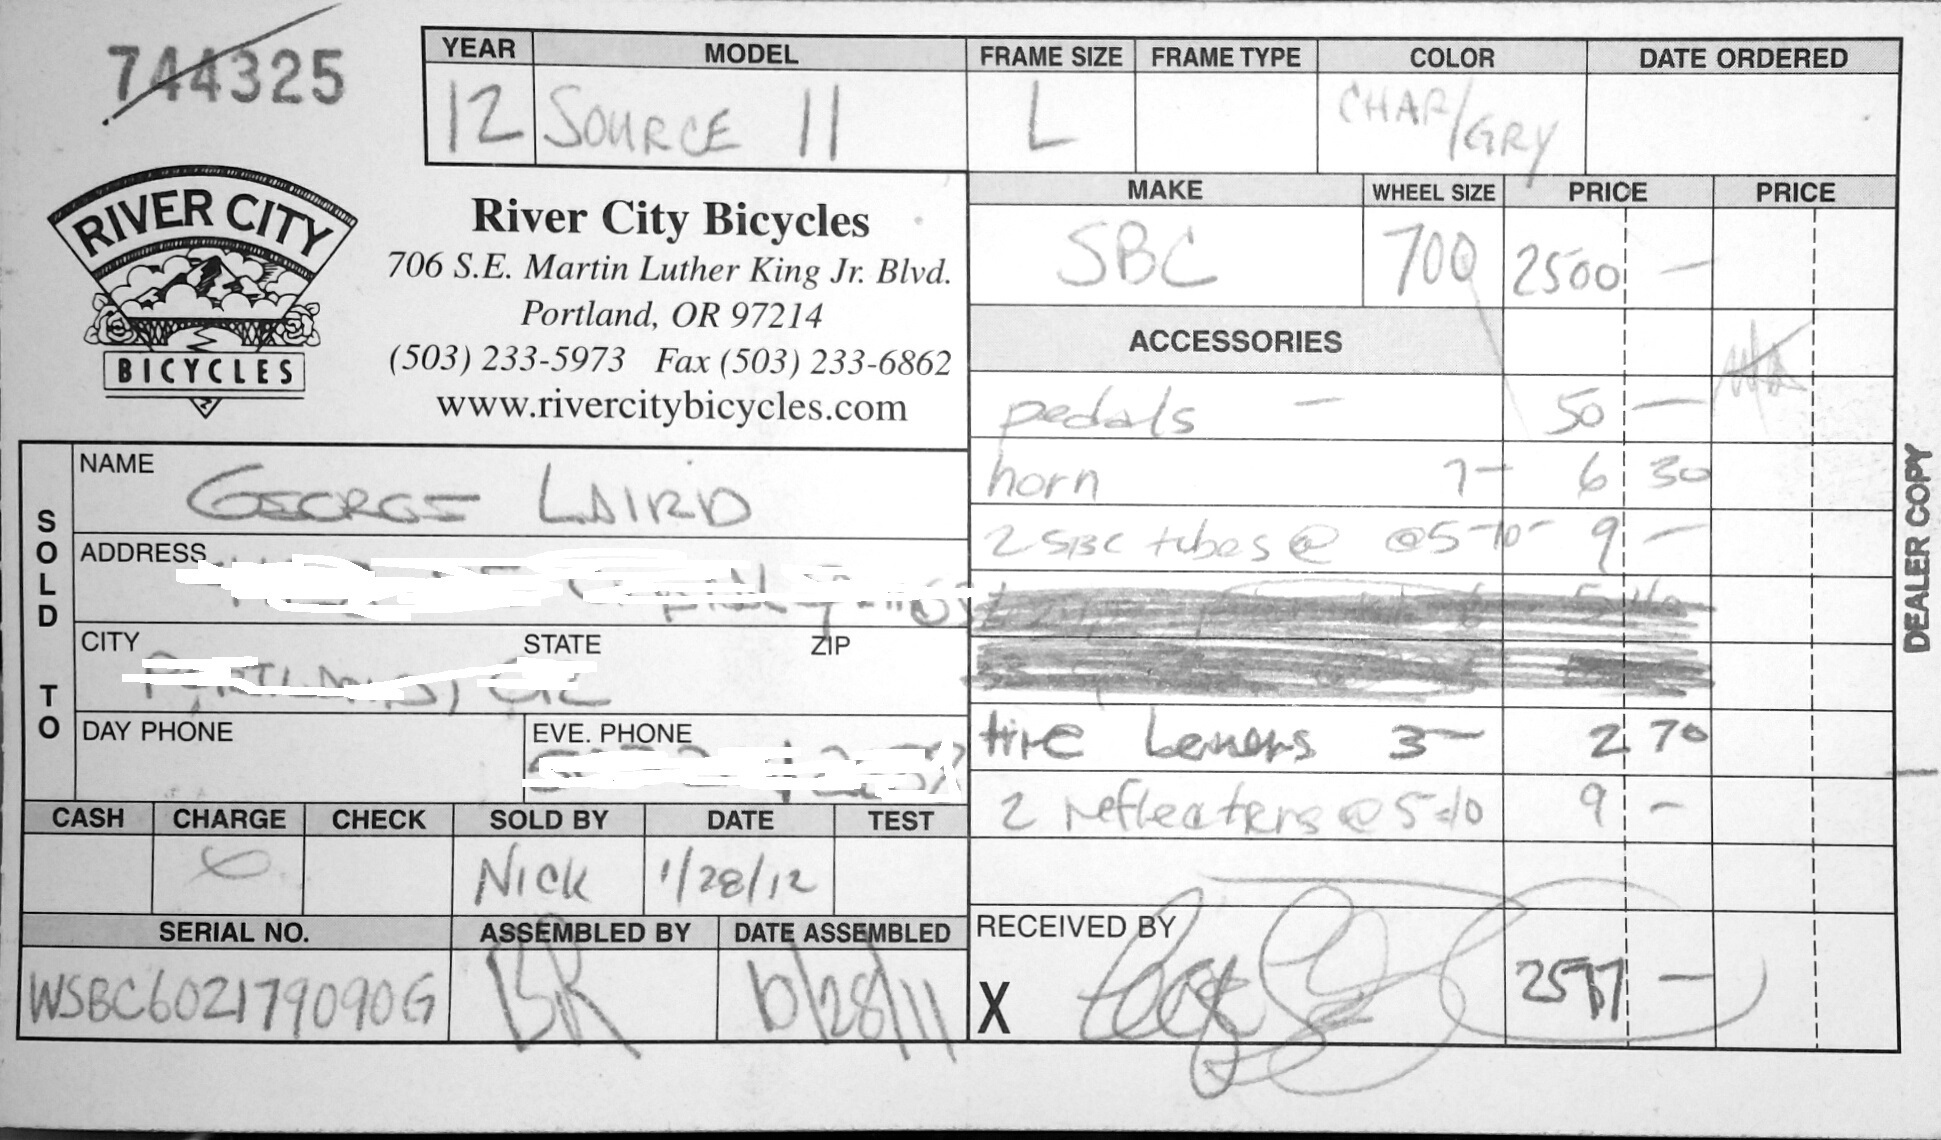 744325
YEAR MODEL FRAME SIZE FRAME TYPE COLOR DATE ORDERED
12 SOURCE 11 L CHAR/GRY
RIVER CITY
BICYCLES
River City Bicycles
706 S.E. Martin Luther King Jr. Blvd.
Portland, OR 97214
(503) 233-5973 Fax (503) 233-6862
www.rivercitybicycles.com
MAKE WHEEL SIZE PRICE PRICE
SBC 700 2500 —
ACCESSORIES
pedals — 50 —
horn 7— 6 30
2 SBC tubes @ @5-10- 9 —
tire 3— 2 70
2 reflectors @ 5=10 9 —
SOLD TO
NAME
GEORGE LAIRD
ADDRESS
CITY STATE ZIP
DAY PHONE EVE. PHONE
CASH CHARGE CHECK SOLD BY DATE TEST
NICK 1/28/12
SERIAL NO. ASSEMBLED BY DATE ASSEMBLED
WSBC602179090G BR 10/28/11
RECEIVED BY
X
2577 —
DEALER COPY